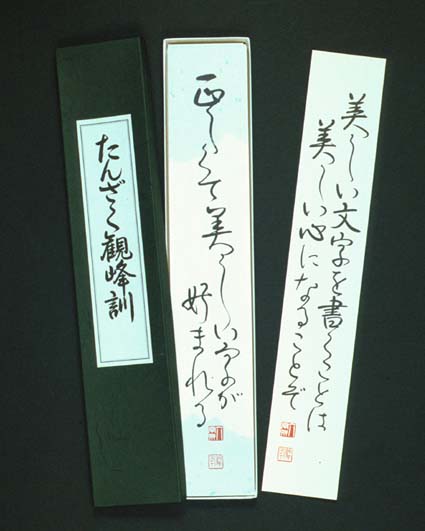 たんざく観峰訓
正しくて美しい字が
好まれる
美しい文字を書くことは
美しい心になることぞ